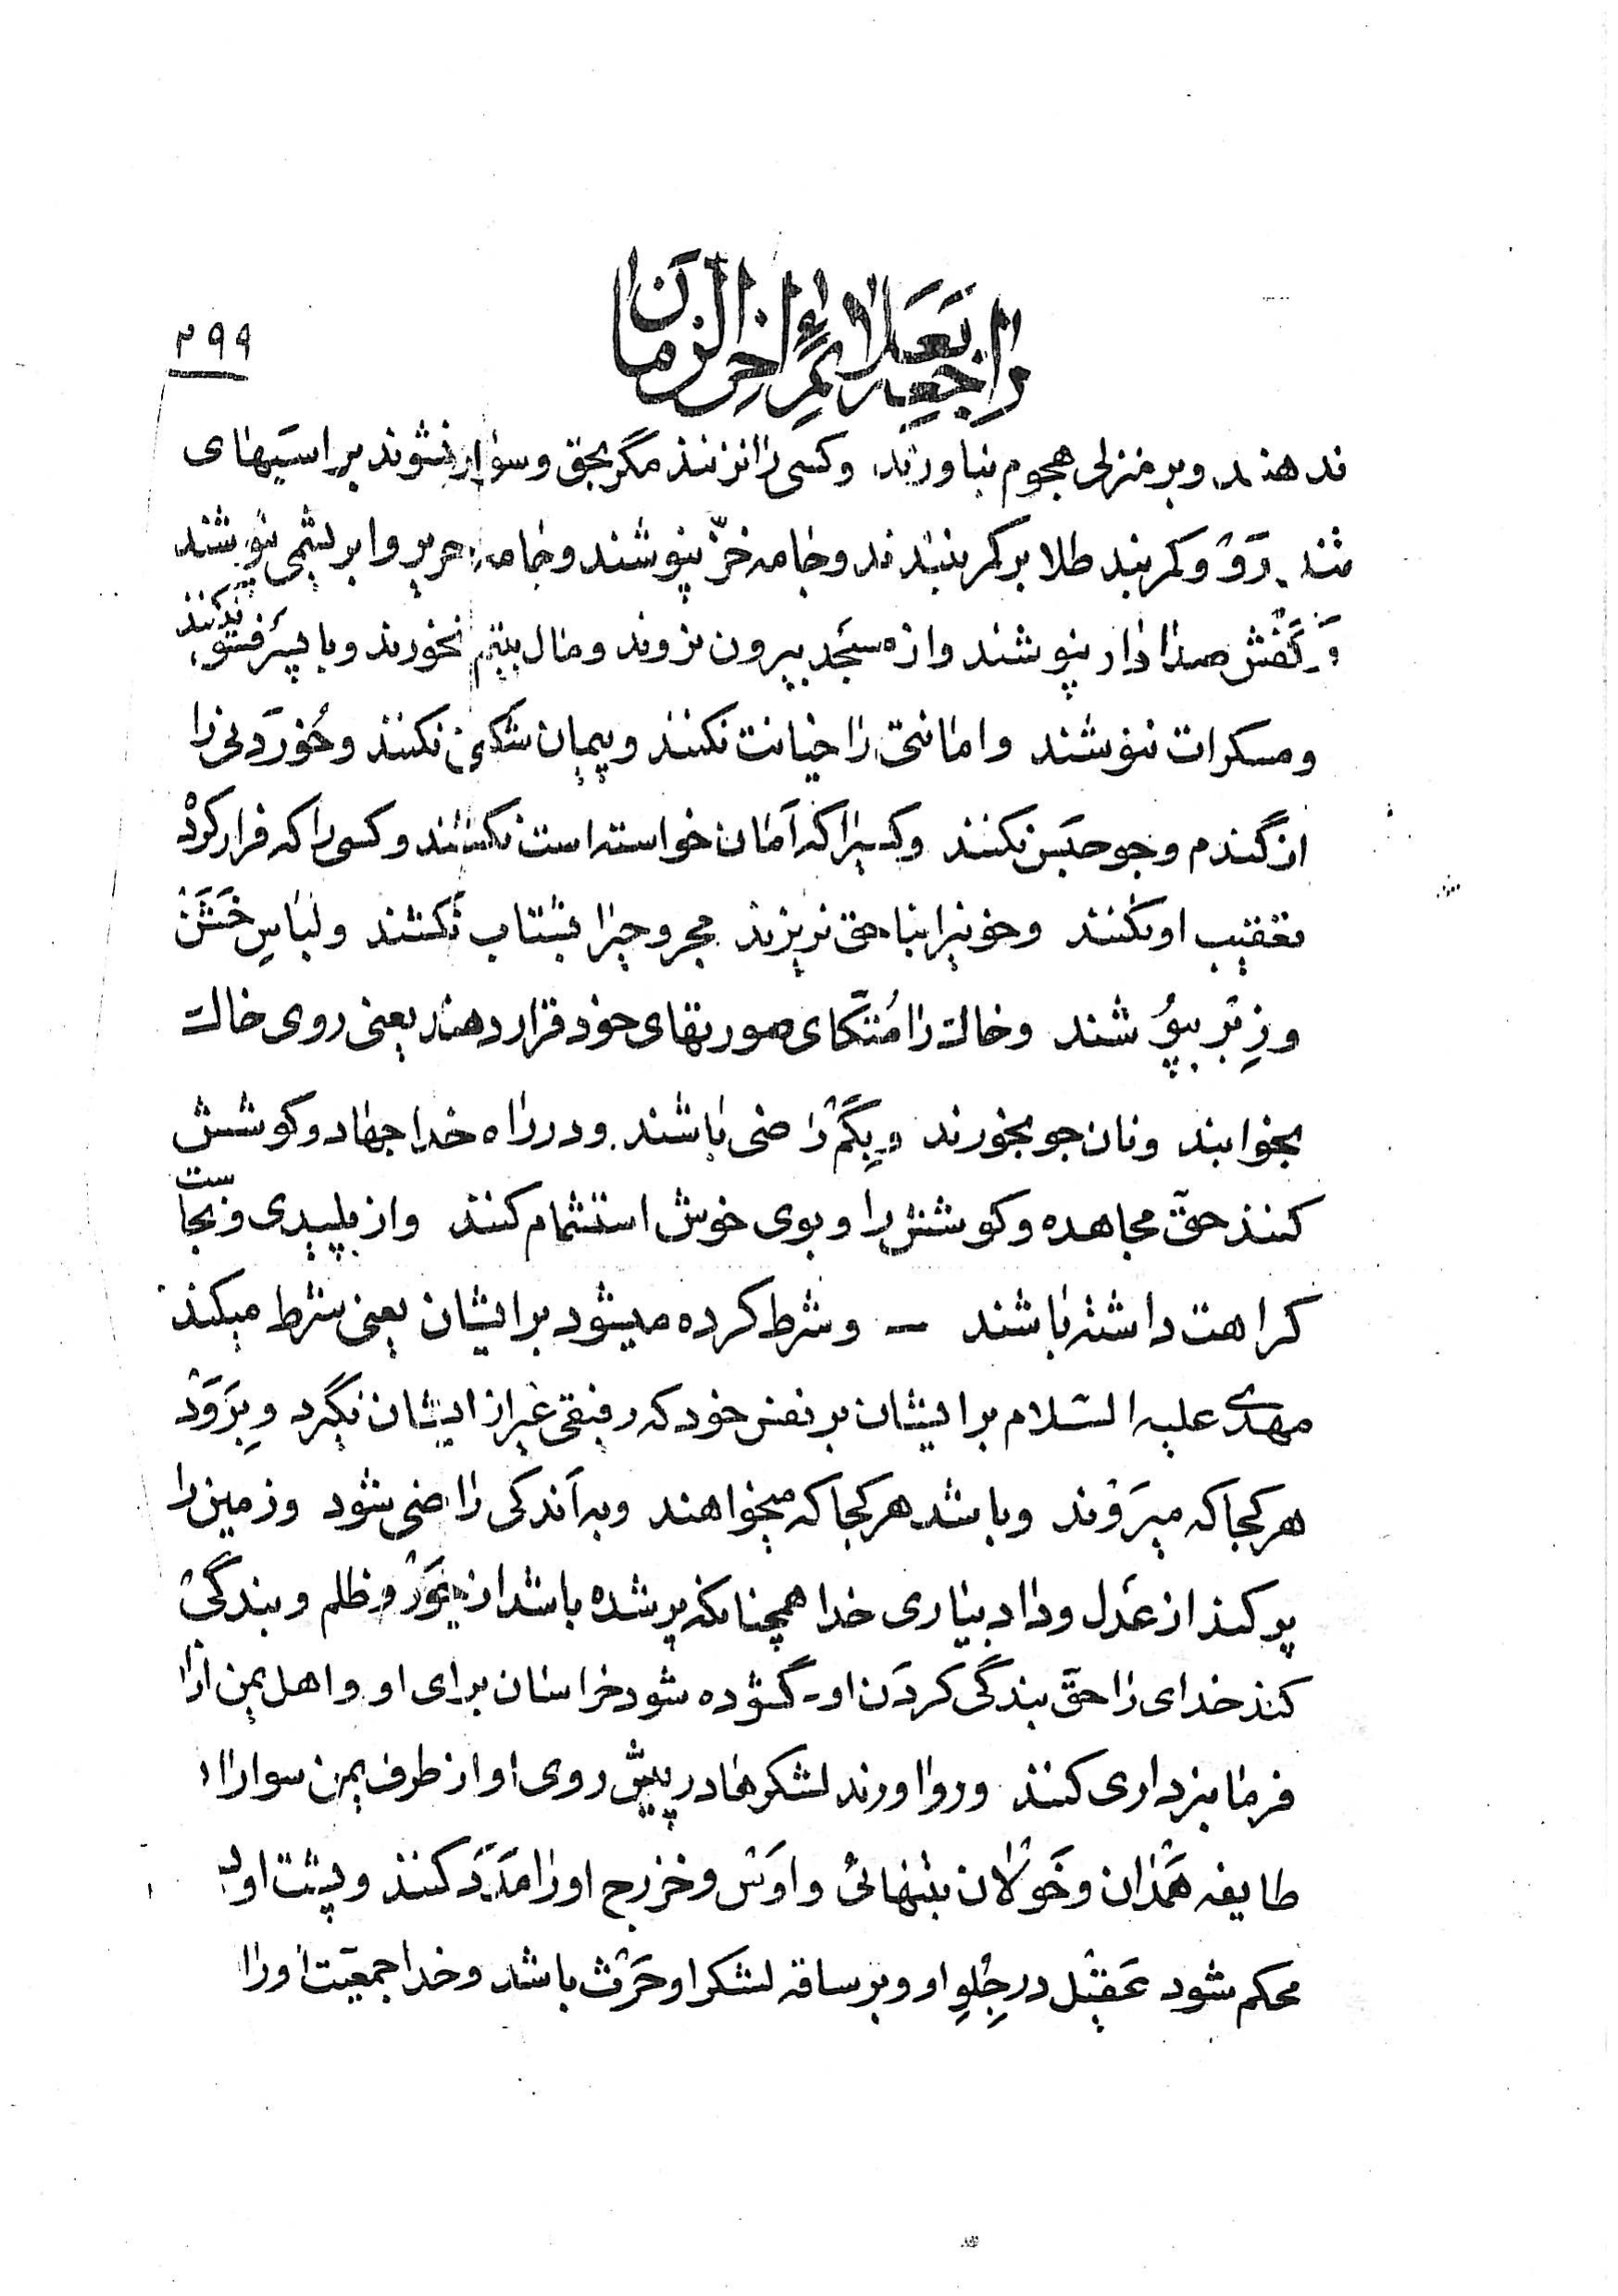 راجع بعلائم اخر الزمان
۲۹۹
ندهند و بر منزلی هجوم نیاورند وکسی را نزنند مگر بحق و سوار نشوند بر اسبهای
رَوْ وکمربند طلا بر کمر نبندند وجامه خزّ نپوشند وجامه حریر وابریشمی نپوشند
وَ کَفْش صدادار نپوشند واز مسجد بیرون نروند ومال یتیم نخورند وبا پسَر فسق نکنند
ومسکرات ننوشند وامانتی را خیانت نکنند وپیمان شکنی نکنند وخُورَدنی را
از گندم وجو حبَس نکنند وکسیرا که اَمان خواسته است نکشند وکسی را که فرار کردْ
تعقیب او نکنند وخونیرا بناحق نریزند مجروحیرا بشتاب نکشند ولباسِ خَشَنْ
وزِبْر بپوُشند وخاک را مُتکّای صورتهای خود قرار دهند یعنی روی خاک
بخوابند ونان جو بخورند وبِکَمْ راضی باشند ودر راه خدا جهاد وکوشش
کنند حقّ مجاهده وکوشش را وبوی خوش استشمام کنند واز پلیدی ونجاست
کراهت داشته باشند – وشرط کرده میشود برایشان یعنی شرط میکند
مهدی علیه السّلام برایشان بر نفس خود که رفیقی غیر از ایشان نگیرد وبِرَوَدْ
هر کجا که میرَوند وباشد هر کجا که میخواهند وبه اَندکی راضی شود وزمین را
پر کند از عَدل وداد بیاری خدا همچنانکه پر شده باشد از جَوْر وظلم وبندگیْ
کند خدای را حقّ بندگی کردَن او- گشوده شود خراسان برای او واهل یمن اورا
فرمانبرداری کنند ورو اورند لشکرها در پیش روی او از طرف یمن سواران
طایفه هَمْدان وخَوْلان بتنهائی واوَس وخزرج اورا مَدَدَ کنند وپشت او
محکم شود عَقیْل در جِلْوِ او وبر ساقه لشکر او حَرْث باشد وخدا جمعیّت اورا